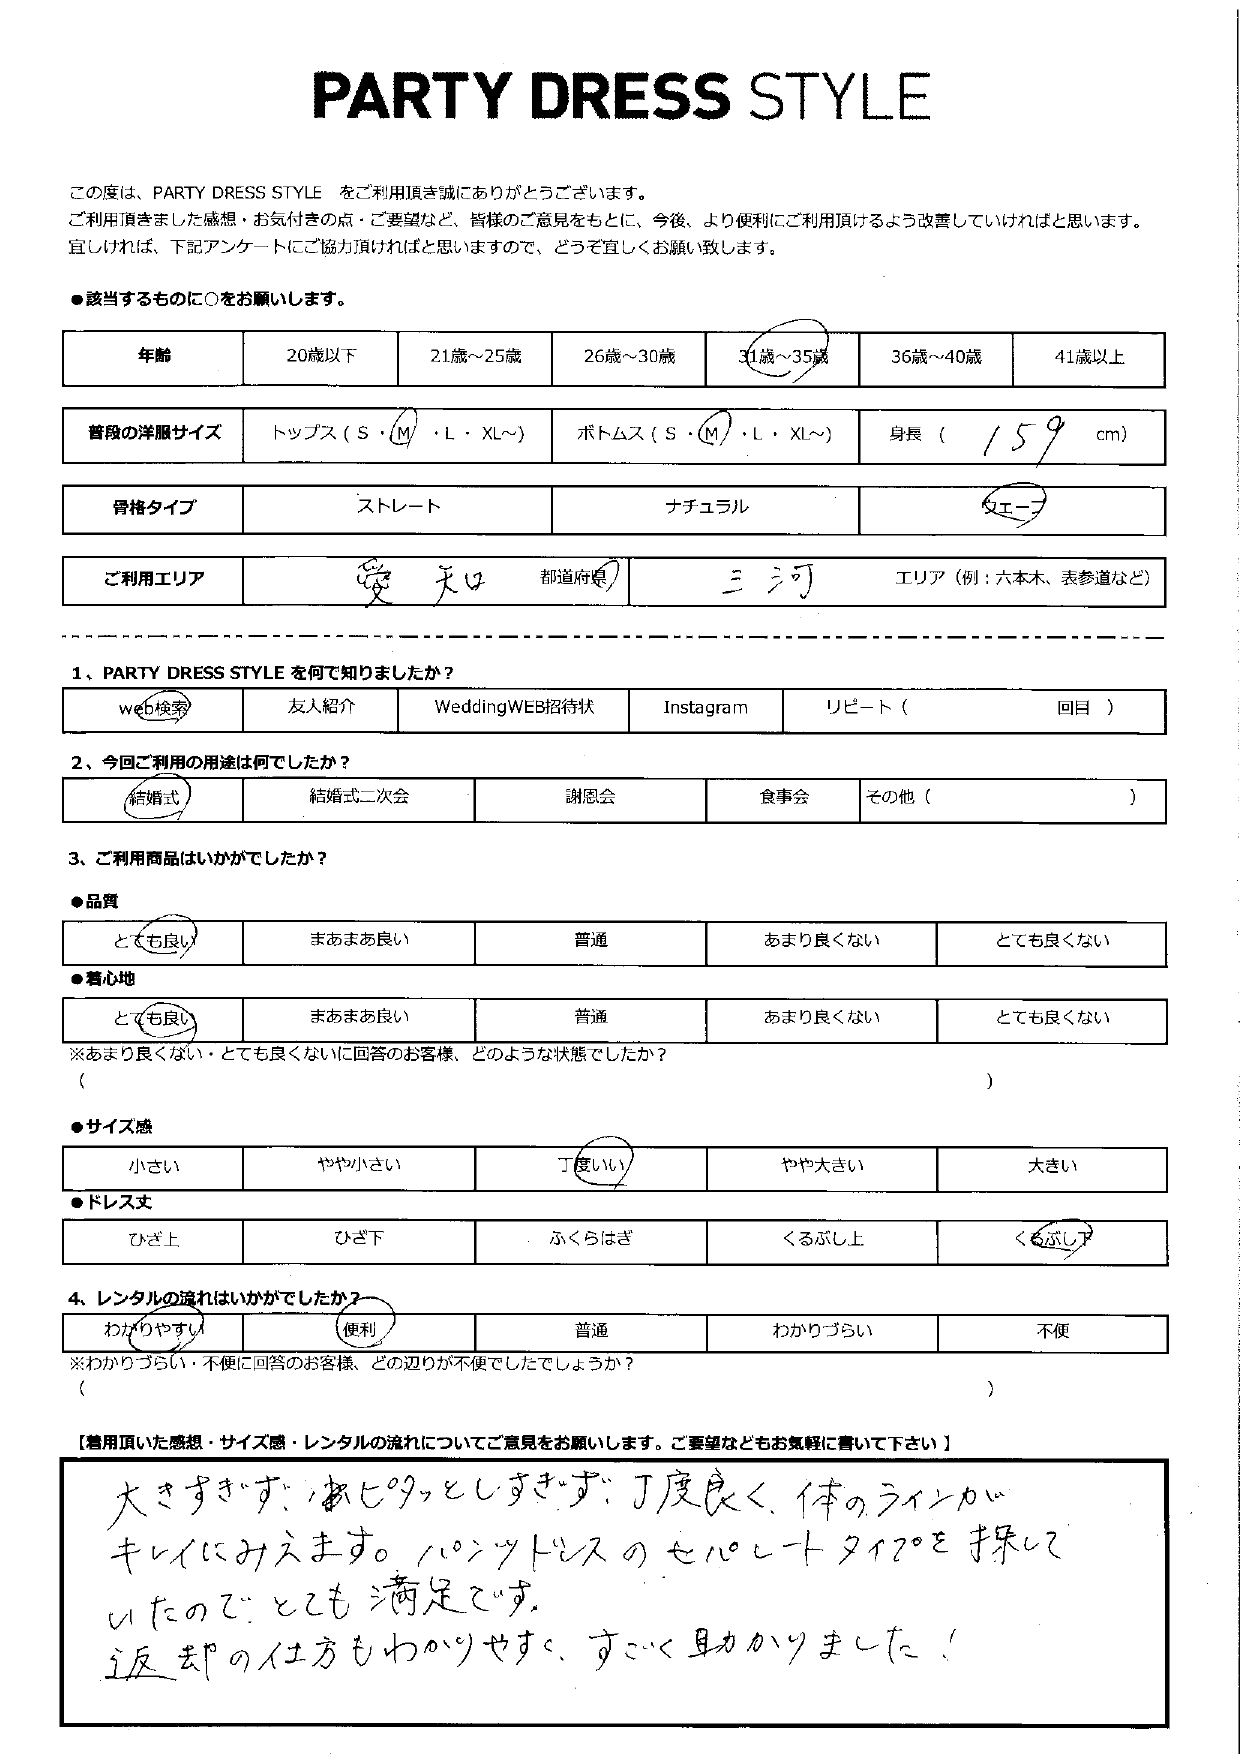 PARTY DRESS STYLE
この度は、PARTY DRESS STYLE をご利用頂き誠にありがとうございます。
ご利用頂きました感想・お気付きの点・ご要望など、皆様のご意見をもとに、今後、より便利にご利用頂けるよう改善していければと思います。
宜しければ、下記アンケートにご協力頂ければと思いますので、どうぞ宜しくお願い致します。
●該当するものに○をお願いします。
年齢 20歳以下 21歳～25歳 26歳～30歳 31歳～35歳 36歳～40歳 41歳以上
普段の洋服サイズ トップス ( S ・ M ・ L ・ XL～) ボトムス ( S ・ M ・ L ・ XL～) 身長 ( 159 cm)
骨格タイプ ストレート ナチュラル ウェーブ
ご利用エリア 愛知 都道府県 三河 エリア（例：六本木、表参道など）
1、PARTY DRESS STYLE を何で知りましたか？
web検索 友人紹介 WeddingWEB招待状 Instagram リピート（ 回目 ）
2、今回ご利用の用途は何でしたか？
結婚式 結婚式二次会 謝恩会 食事会 その他（ ）
3、ご利用商品はいかがでしたか？
●品質
とても良い まあまあ良い 普通 あまり良くない とても良くない
●着心地
とても良い まあまあ良い 普通 あまり良くない とても良くない
※あまり良くない・とても良くないに回答のお客様、どのような状態でしたか？
（ ）
●サイズ感
小さい やや小さい 丁度いい やや大きい 大きい
●ドレス丈
ひざ上 ひざ下 ふくらはぎ くるぶし上 くるぶし下
4、レンタルの流れはいかがでしたか？
わかりやすい 便利 普通 わかりづらい 不便
※わかりづらい・不便に回答のお客様、どの辺りが不便でしたでしょうか？
（ ）
【着用頂いた感想・サイズ感・レンタルの流れについてご意見をお願いします。ご要望などもお気軽に書いて下さい 】
大きすぎず、ピタッとしすぎず、丁度良く、体のラインが
キレイにみえます。パンツドレスのセパレートタイプを探して
いたので、とても満足です。
返却の仕方もわかりやすく、すごく助かりました！